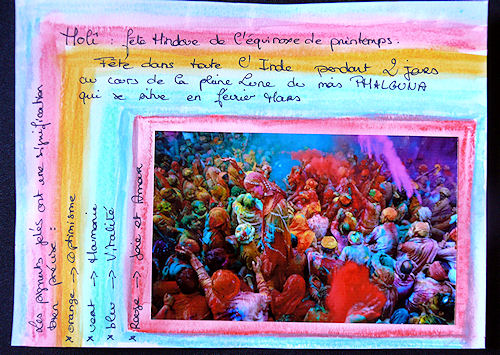 Holi : fête Hindoue de l'équinoxe de printemps.
Fête dans toute l'Inde pendant 2 jours
au cours de la pleine Lune du mois PHALGUNA
qui se situe en février Mars
Les pigments jetés ont une signification
bien précise :
x orange → Optimisme
x vert → Harmonie
x bleu → Vitalité
x Rouge → Joie et Amour